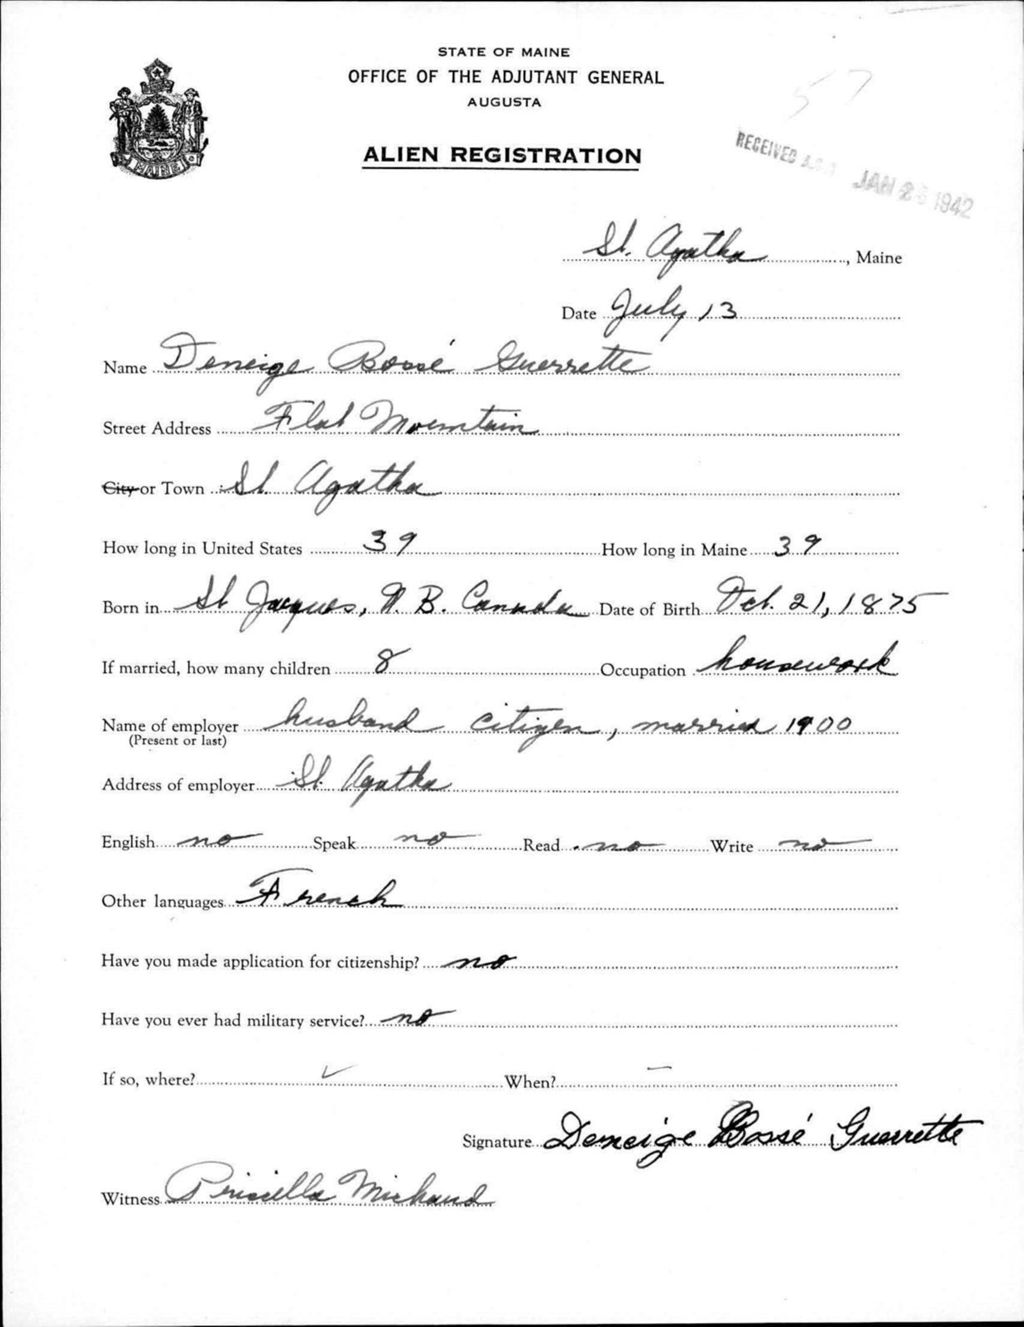 STATE OF MAINE
OFFICE OF THE ADJUTANT GENERAL
AUGUSTA
ALIEN REGISTRATION
57
RECEIVED A.G.O. JAN 2 1942
MAINE
St. Agatha, Maine
Date July 13
Name Demeige Bossé Guerrette
Street Address Flat Mountain
City or Town St. Agatha
How long in United States 39 How long in Maine 39
Born in St Jacques, N. B. Canada Date of Birth Oct. 21, 1875
If married, how many children 8 Occupation housework
Name of employer husband citizen, married 1900
(Present or last)
Address of employer St. Agatha
English no Speak no Read no Write no
Other languages French
Have you made application for citizenship? no
Have you ever had military service? no
If so, where? ✓ When? –
Signature Demeige Bossé Guerrette
Witness Priscilla Michaud